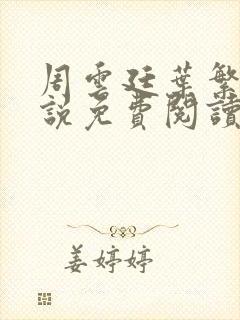 周雲廷葉繁
說免費閱讀
姜婷婷